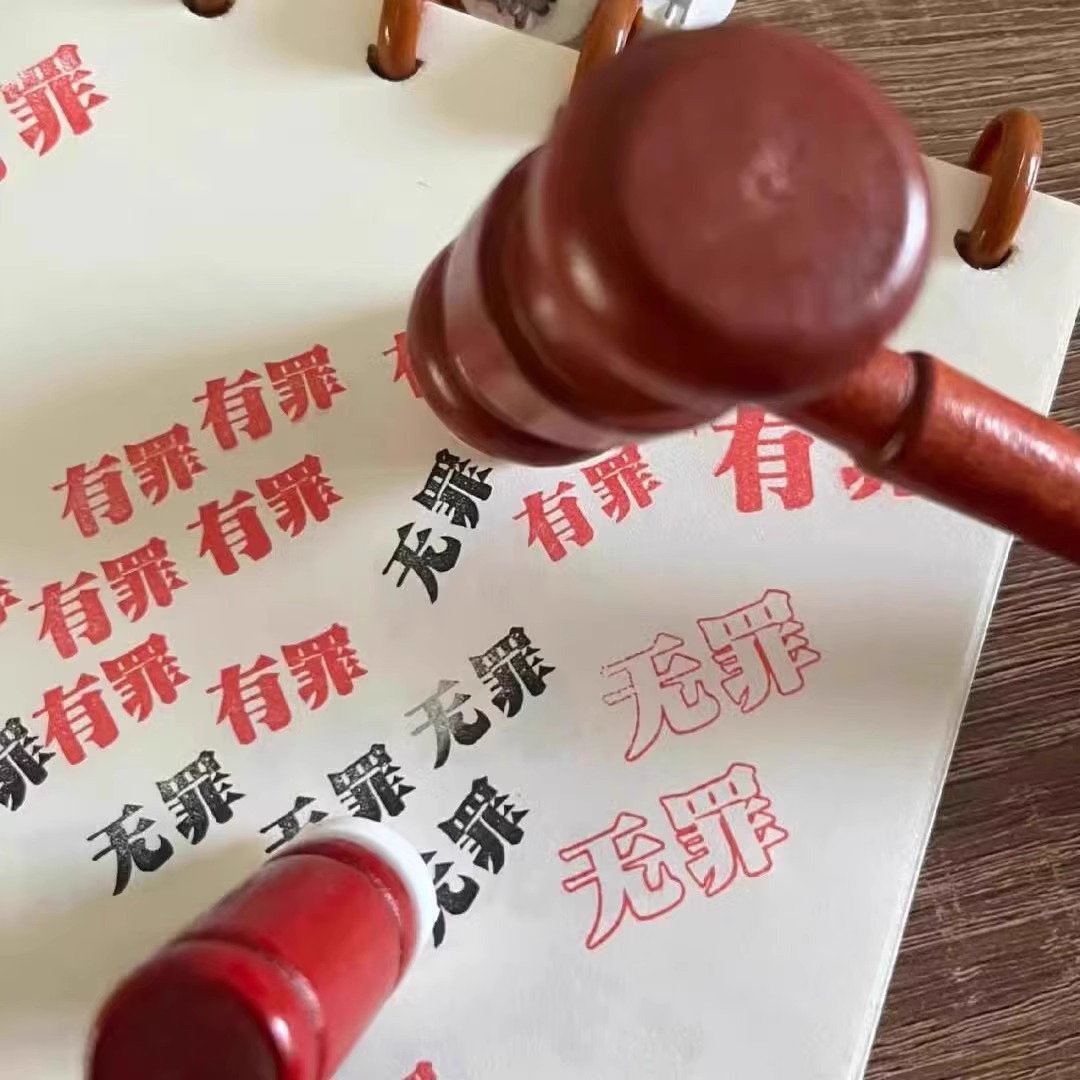 罪
有罪
有罪
有罪
有罪
有罪
有罪
有罪
无罪
有罪
有罪
无罪
无罪
无罪
罪
无罪
无罪
无罪
无罪